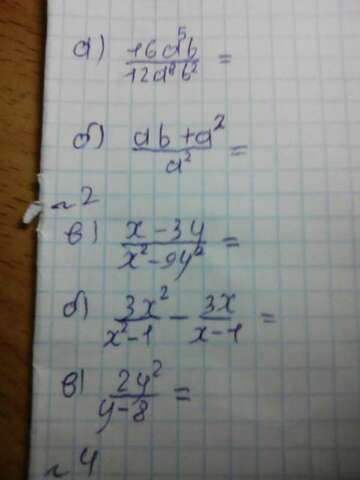 а) 16a⁵b / 12a⁴b² =
б) ab + a² / a² =
~2
в) x - 3y / x² - 9y² =
б) 3x² / x² - 1 - 3x / x - 1 =
в) 2y² / y - 8 =
~4